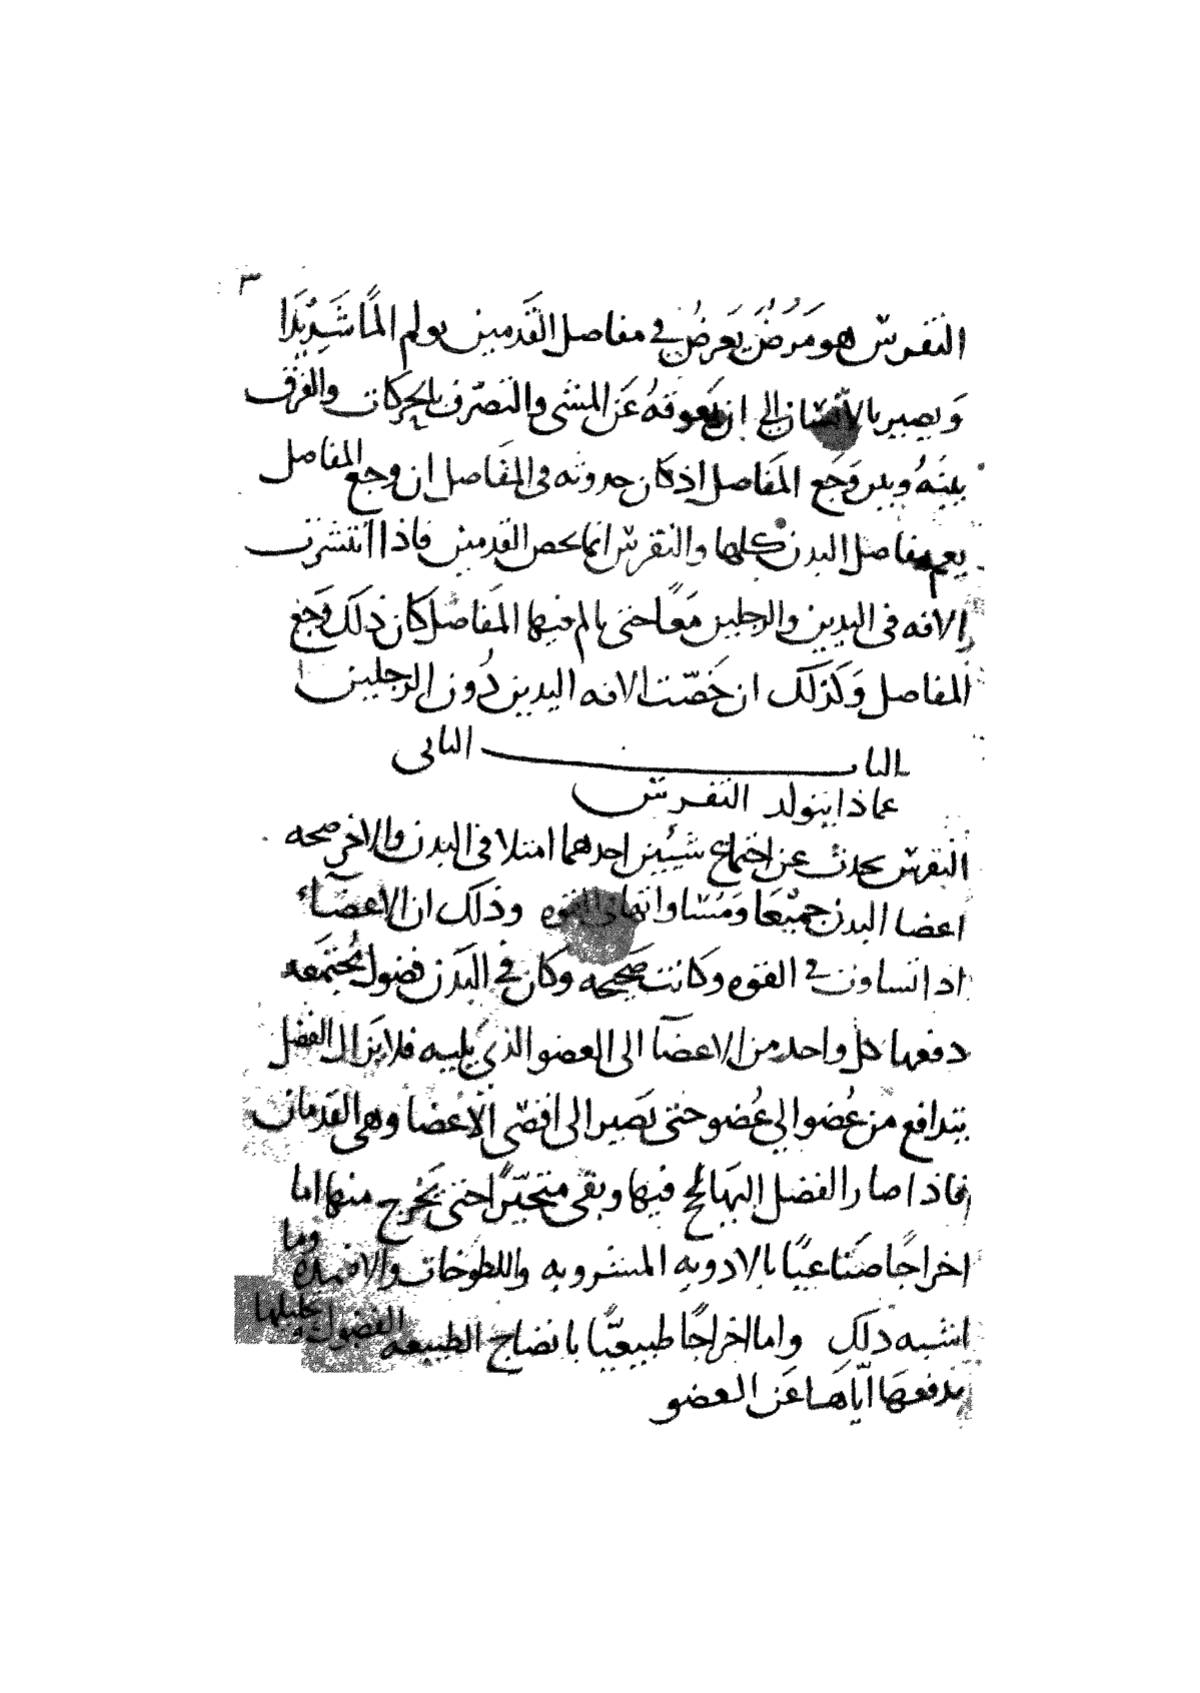 ٣
النقرس هو مَرَضٌ يَعرضُ في مفاصل القَدمين يولم المًا شَدِيْدَا
وَيصير بالانسان الى ان يَعوقهُ عَن المشى والتصّرف بالحركات والفرق
بينَهُ وبين وَجَع المَفاصل اذ كان حدوثه فى المَفَاصل ان وجع المفاصل
يعم مفاصل البدن كلها والنقرس انما يخص القدمين فاذا انتشرت
الافه فى اليدين والرجلين مَعًا حتى يالم فيها المَفاصَل كان ذلَك وَجَع
المفاصل وَكذلَك ان خَصّت الافه اليدين دُون الرجلين
الباب الثانى
عماذا يتولد النقرس
النقرس يحدث عن اجتماع شَيئين احدهما امتلا فى البدن والاخر صحه
اعضا البدن جميْعَا وَمسَاواتها فى القوه وذلَك ان الاعضَآء
اذا تساوت فى القوه وكانت صَحِيحه وكان في البَدَن فضول مُجتمَعه
دفعها كل واحد من الاعضَآ الى العضو الذي يليه فلا يَزال الفضل
يتدافع من عُضو الي عُضو حتى تصير الى اقصّى الاعضا وهى القَدمان
فاذا صار الفضل اليهَا لحج فيها وبقى متحيّرًا حتى يَخْرج منها اما
اخراجًا صَناعيًا بالادويه المشروبه واللطوخات والاضمده وما
اشبه ذلك واما اخراجًا طبيعيًّا بانضاج الطبيعه الفضول وتحليلها
بدفعهَا ايّاهَا عَن العضو